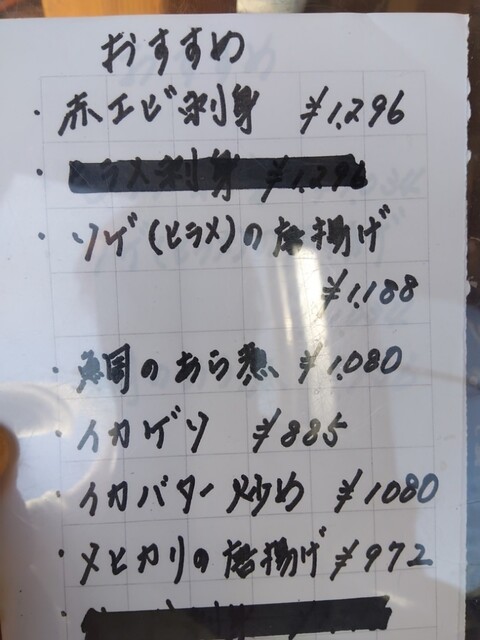 おすすめ
・赤エビ刺身 ¥1,296
・ヒラメ刺身 ¥1,296
・ソゲ(ヒラメ)の唐揚げ
¥1,188
・魚国のあら煮 ¥1,080
・イカゲソ ¥885
・イカバター炒め ¥1080
・メヒカリの唐揚げ ¥972